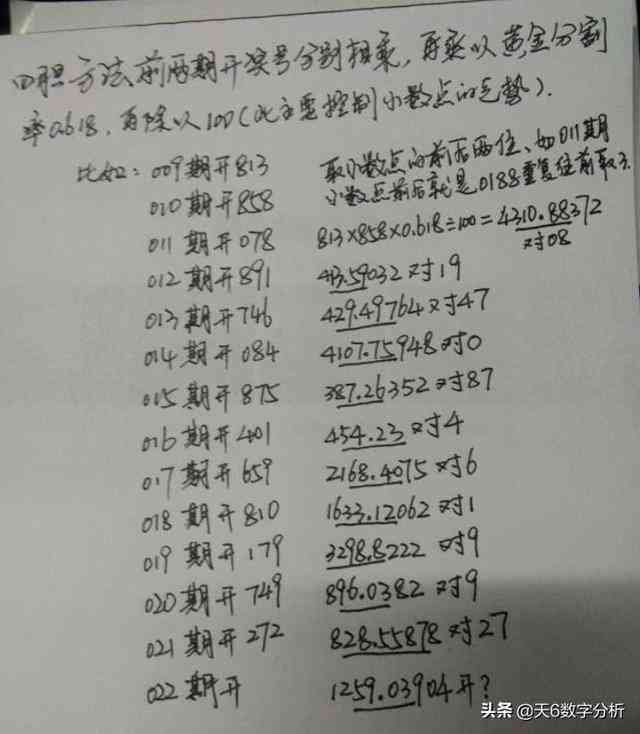 四胆方法前两期开奖号分别相乘，再乘以黄金分割
率0.618，再除以100(此主要控制小数点的走势).
比如：009期开813 取小数点的前后两位、如011期
010期开858 小数点前后就是0188重复往前取3.
011期开078 813×858×0.618÷100=4310.88372
对08
012期开891 413.59032对19
013期开746 429.49764对47
014期开084 4107.75948对0
015期开875 387.26352对87
016期开401 454.23对4
017期开659 2168.4075对6
018期开810 1633.12062对1
019期开179 3298.8222对9
020期开749 896.0382对9
021期开272 828.55878对27
022期开 1259.03904开?
头条 @天6数字分析